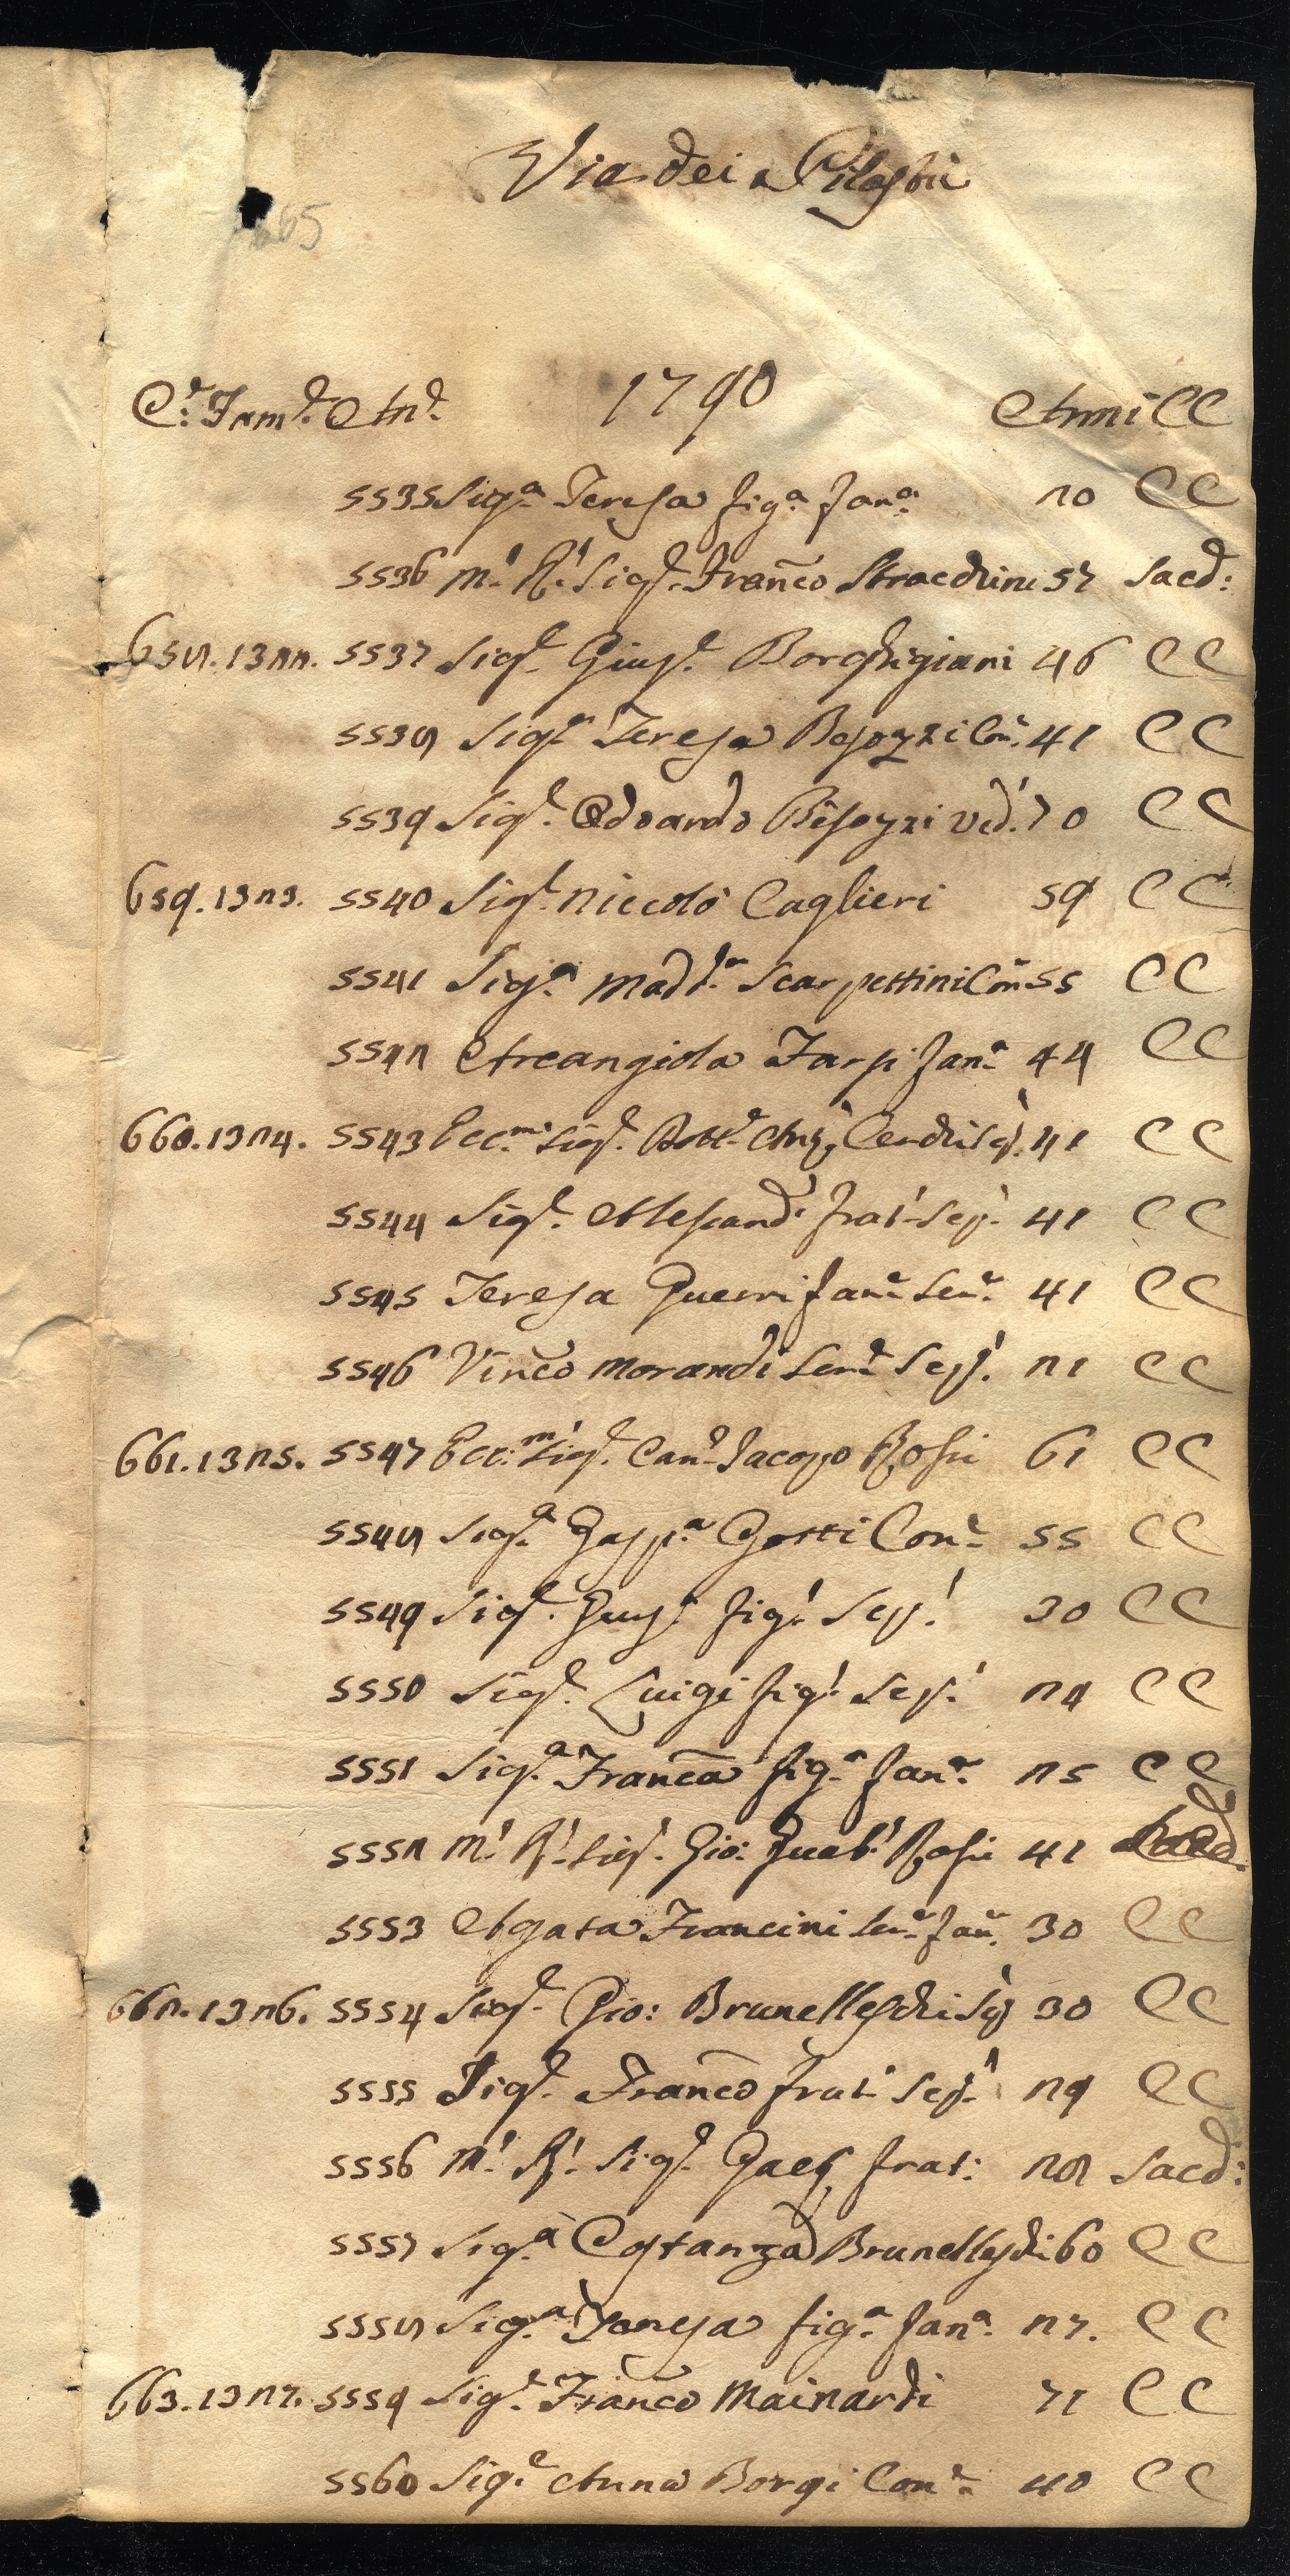 Via dei Pilastri
65
C.e Fam.e An.e 1790 Anni CC
5535 Sig.a Teresa fig.a fan.a 20 CC
5536 M.t R.o Sig.r Fran.co Stracchini 57 Sacd:
658. 1322. 5537 Sig.r Gius.e Borghigiani 46 CC
5538 Sig.a Teresa Besozzi Con.e 41 CC
5539 Sig.r Edoardo Besozzi Ved.o 70 CC
659. 1323. 5540 Sig.r Niccolò Caglieri 59 CC
5541 Sig.a Madd.a Scarpettini Con.e 55 CC
5542 Arcangiola Tarpi fan.a 44 CC
660. 1324. 5543 Ecc.mo Sig.r Dott.e Ang.o 41 CC
5544 Sig.r Alessand.o frat.o Scp.o 41 CC
5545 Teresa Guerri fan.a Ser.a 41 CC
5546 Vinc.o Morandi Ser.e Scp.o 21 CC
661. 1325. 5547 Ecc.mo Sig.r Can.e Jacopo Rossi 61 CC
5548 Sig.a Gasp.a Gotti Con.e 55 CC
5549 Sig.r Gius.e fig.o Scp.o 30 CC
5550 Sig.r Luigi fig.o Scp.o 24 CC
5551 Sig.a Fran.ca fig.a fan.a 25 CC
5552 M.t R.o Sig.r Gio: Gualb.o Rossi 41 Sacd.
5553 Agata Francini Ser.a fan.a 30 CC
662. 1326. 5554 Sig.r Gio: Brunelleschi Scp 30 CC
5555 Sig.r Fran.co frat.o Scp.o 29 CC
5556 M.t R.o Sig.r Gaet.o frat: 28 Sacd:
5557 Sig.a Costanza Brunelleschi 60 CC
5558 Sig.a Teresa fig.a fan.a 27. CC
663. 1327. 5559 Sig.r Fran.co Mainardi 71 CC
5560 Sig.a Anna Borgi Con.e 40 CC